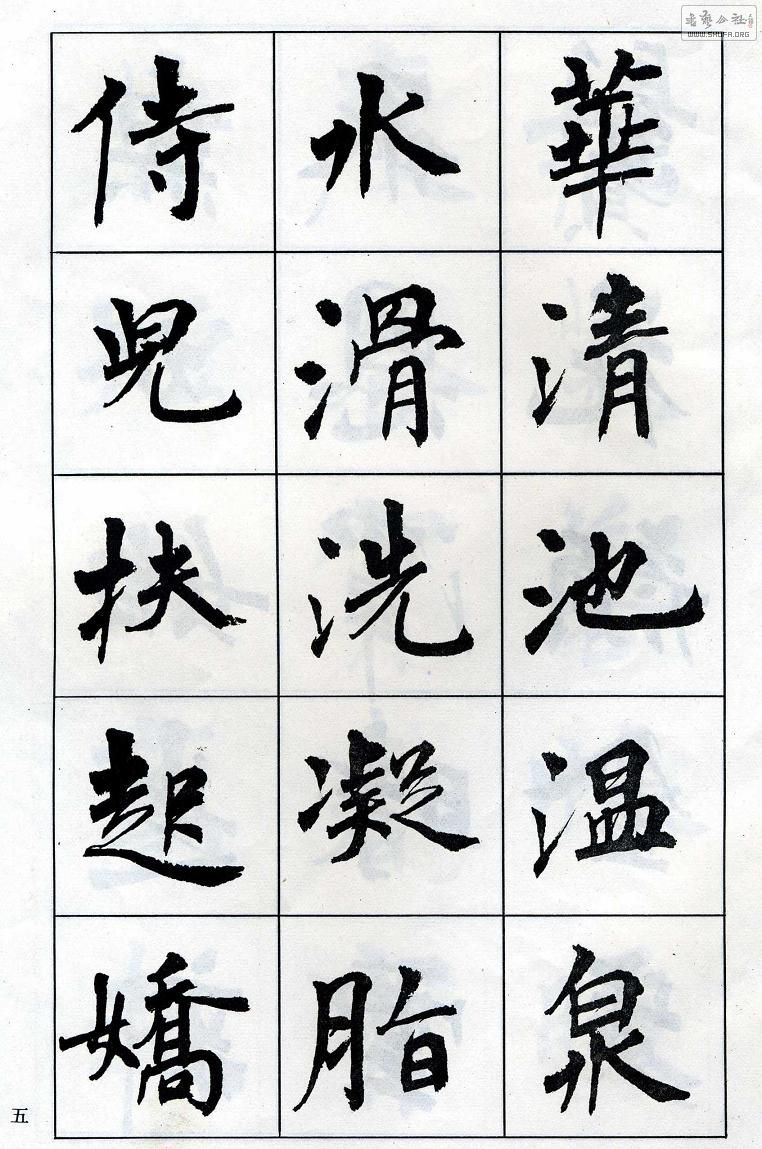 華清池温泉
水滑洗凝脂
侍児扶起嬌
五
WWW.SHUFA.ORG